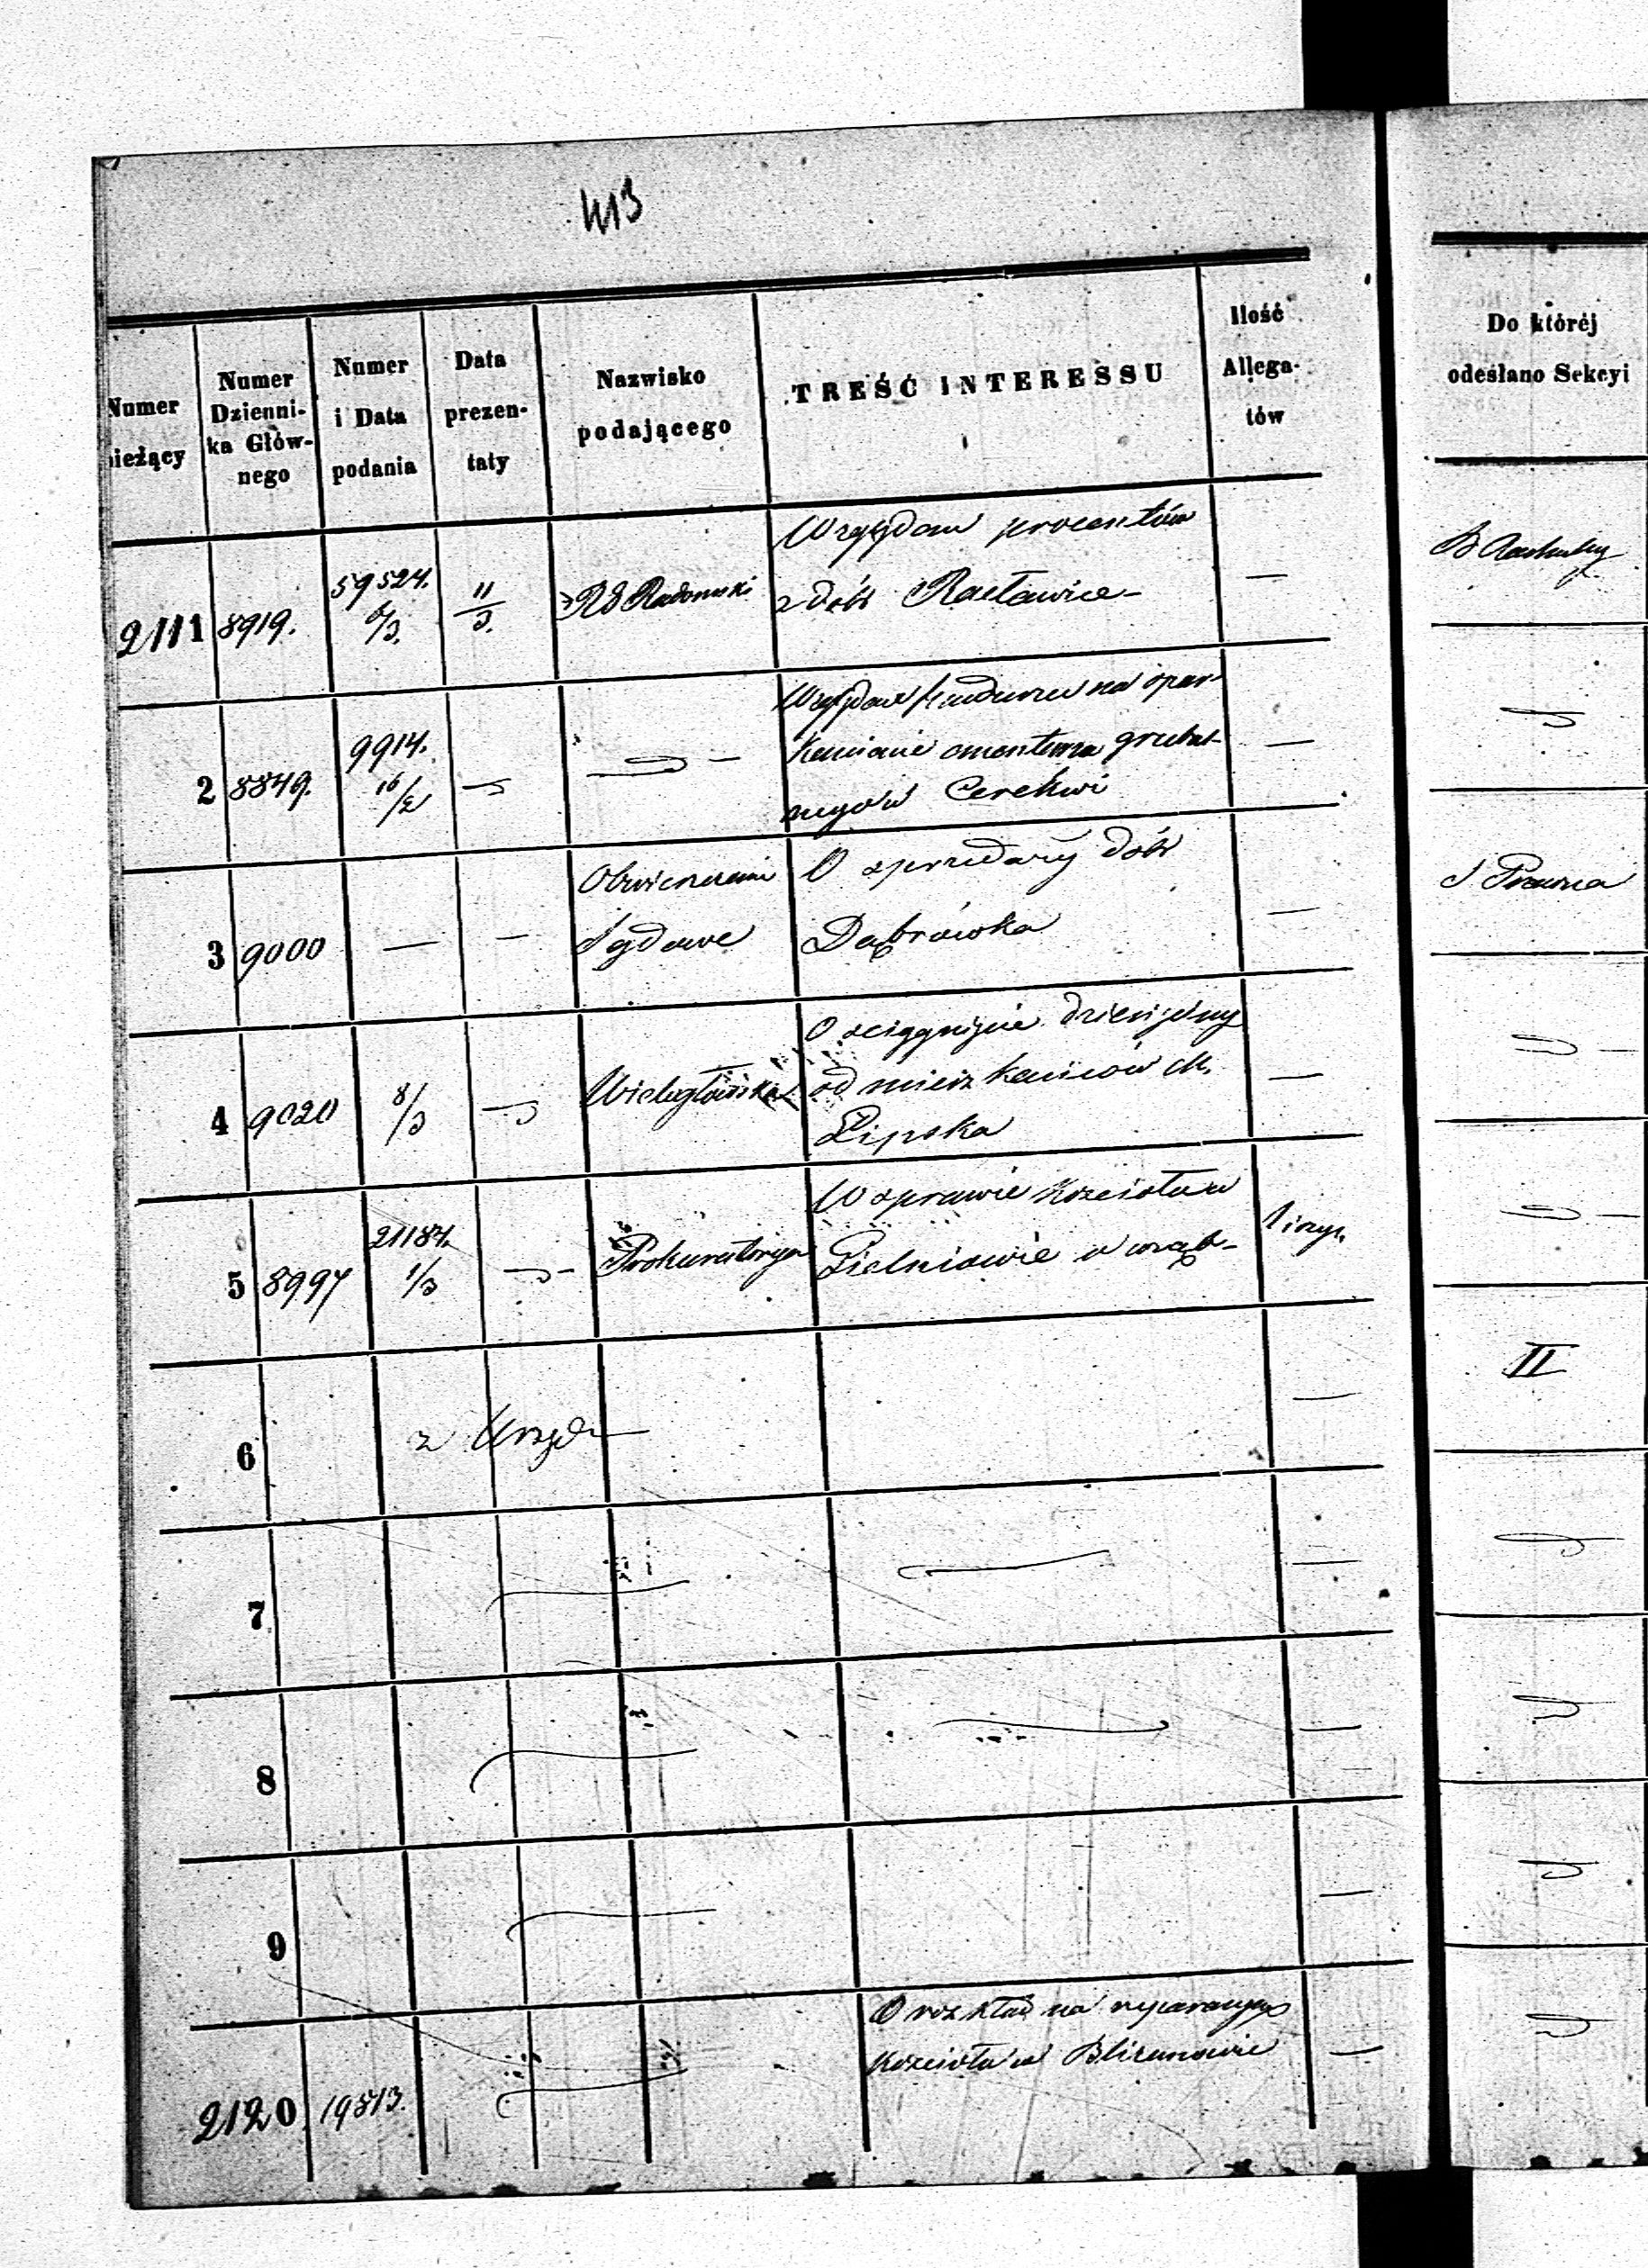 413
Numer
ieżący
Numer
Dzienni-
ka Głów-
nego
Numer
i Data
podania
Data
prezen-
taty
Nazwisko
podającego
TREŚĆ INTERESSU
Ilość
Allega-
tów
Do któréj
odesłano Sekcyi
2111 8919. 59524. 6/3. 11/3. Radomski
Względem procentów
z dóbr Racławice —
2 8849. 9914. 16/2
Względem funduszu na opar-
kanienie cmentarza grzebal-
nego w Cerekwi —
3 9000 — —
Obwieszczenie
Sądowe
O sprzedaży dóbr
Dąbrówka —
S. Prawna
4 9020 8/3
Wielogłowski
O ściągnięcie dziesięciny
od mieszkańców M.
Lipska —
5 8997 21184. 1/3 Prokuratorya
W sprawie Kościoła w
Gielniowie
II
6 z Urzędu —
7 —
8 —
9 —
2120 19813.
O rozkład na reperacyę
Kościoła w Bliżanowie —